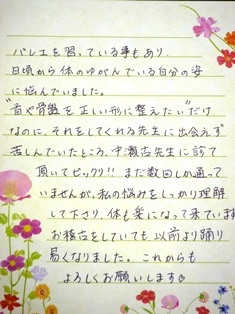 バレエを習っている事もあり、
日頃から体のゆがんでいる自分の姿
に悩んでいました。
"首や骨盤を正しい形に整えたい"だけ
なのに、それをしてくれる先生に出会えず
苦しんでいたところ、中瀬古先生に診て
頂いてビックリ!! まだ数回しか通って
いませんが、私の悩みをしっかり理解
して下さり、体も楽になって来ています
お稽古をしていても、以前より踊り
易くなりました。これからも
よろしくお願いします